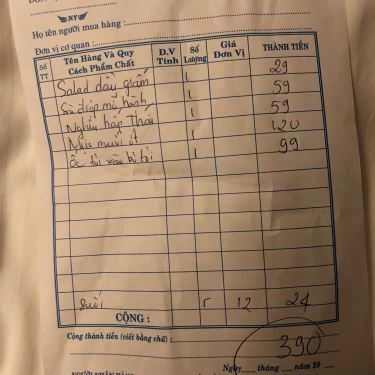 XT
Họ tên người mua hàng :
Đơn vị cơ quan :
Số TT Tên Hàng Và Quy Cách Phẩm Chất Đ.V Tính Số Lượng Giá Đơn Vị THÀNH TIỀN
Salad dầu giấm 1 29
Sò điệp mỡ hành 1 59
Nghêu hấp Thái 1 59
muối ớt 1 120
Ốc 1 99
Suối 12 24
CỘNG :
Cộng thành tiền (viết bằng chữ) :
390
Ngày tháng năm 20